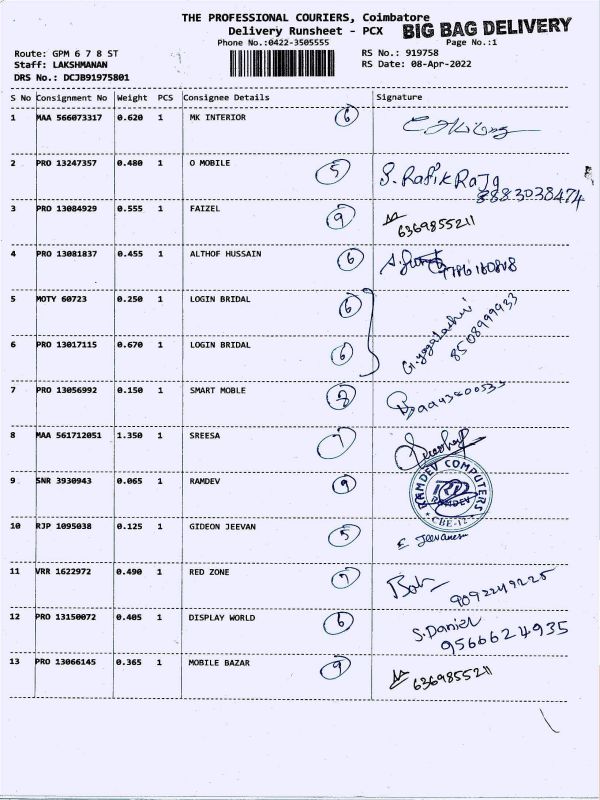 THE PROFESSIONAL COURIERS, Coimbatore
BIG BAG DELIVERY
Delivery Runsheet - PCX
Phone No.:0422-3505555
Page No.:1
Route: GPM 6 7 8 ST
RS No.: 919758
Staff: LAKSHMANAN
RS Date: 08-Apr-2022
DRS No.: DCJB91975801
S No Consignment No Weight PCS Consignee Details Signature
1 MAA 566073317 0.620 1 MK INTERIOR 6
2 PRO 13247357 0.480 1 O MOBILE 5 S. Rafik Raja
8883038474
3 PRO 13084929 0.555 1 FAIZEL 9 6369855211
4 PRO 13081837 0.455 1 ALTHOF HUSSAIN 6 7786160848
5 MOTY 60723 0.250 1 LOGIN BRIDAL 6
G.yogalashri
8508999933
6 PRO 13017115 0.670 1 LOGIN BRIDAL 6
7 PRO 13056992 0.150 1 SMART MOBLE 8
8 MAA 561712051 1.350 1 SREESA 7
9 SNR 3930943 0.065 1 RAMDEV 9
RAMDEV COMPUTERS
RAMDEV
CBE-12
10 RJP 1095038 0.125 1 GIDEON JEEVAN 5 E Jeevanesu
11 VRR 1622972 0.490 1 RED ZONE 7
9092249225
12 PRO 13150072 0.405 1 DISPLAY WORLD 6 S.Daniel
9566624935
13 PRO 13066145 0.365 1 MOBILE BAZAR 9 6369855211